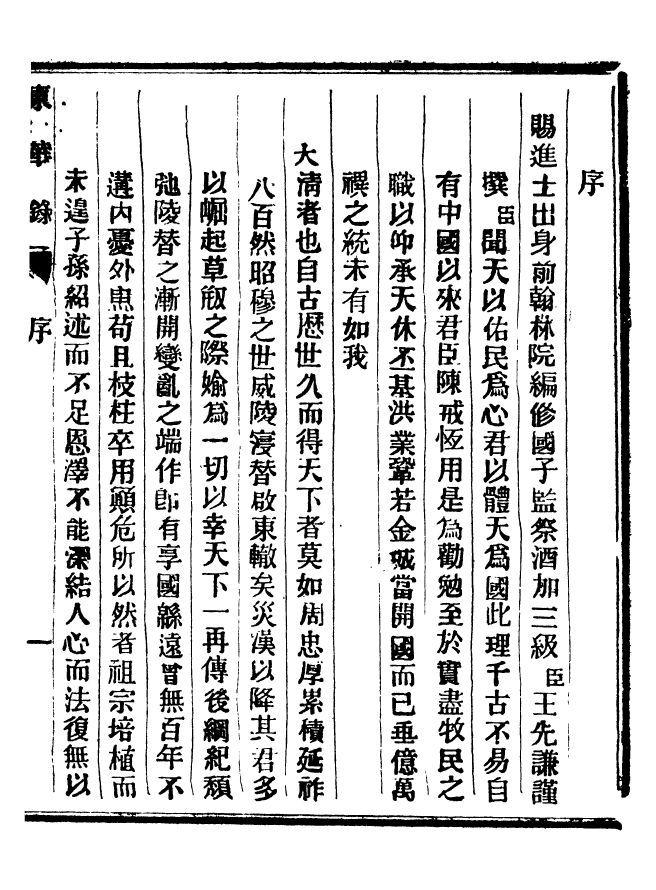 序
賜進士出身前翰林院編修國子監祭酒加三級臣王先謙謹
撰臣聞天以佑民爲心君以體天爲國此理千古不易自
有中國以來君臣陳戒恆用是為勸勉至於實盡牧民之
職以仰承天休丕基洪業鞏若金城當開國而已垂億萬
禩之統未有如我
大清者也自古歷世久而得天下者莫如周忠厚累積延祚
八百然昭穆之世威陵寖替啟東轍矣災漢以降其君多
以崛起草創之際婾爲一切以幸天下一再傳後綱紀頹
弛陵替之漸開變亂之端作卽有享國緜遠曾無百年不
遘內憂外患苟且枝柱卒用顚危所以然者祖宗培植而
未遑子孫紹述而不足恩澤不能深結人心而法復無以
東華錄
序
一